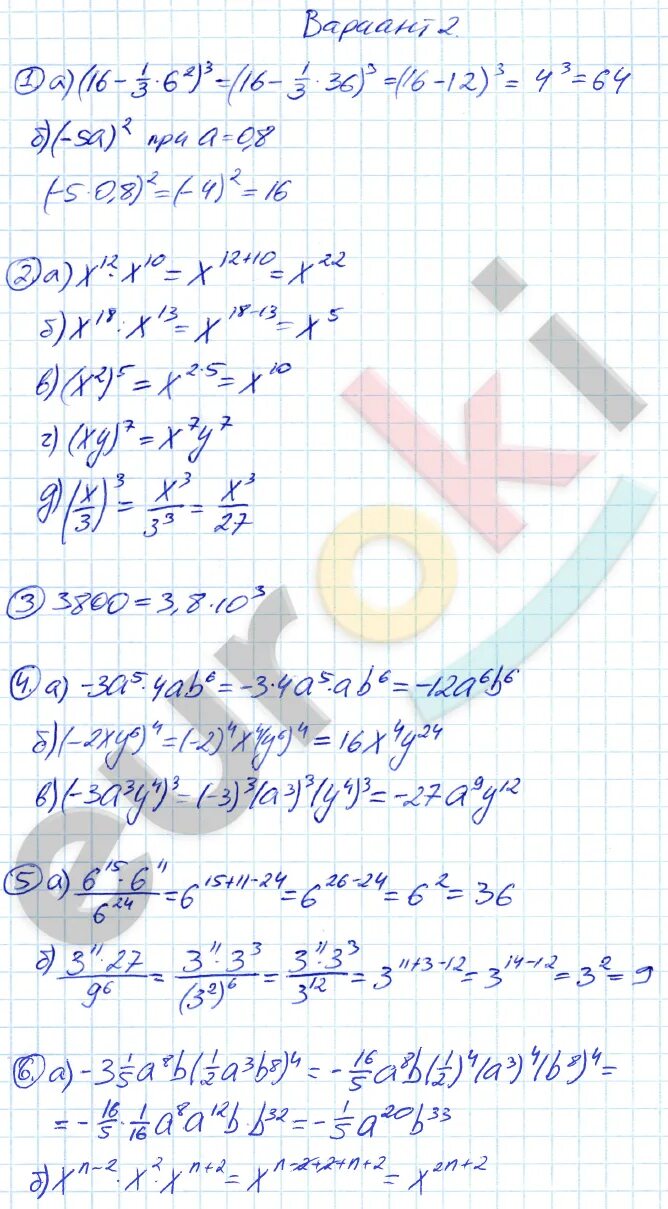 Вариант 2.
① а) (16 - 1/3 · 6²)³ = (16 - 1/3 · 36)³ = (16 - 12)³ = 4³ = 64
б) (-5a)² при a = 0,8
(-5 · 0,8)² = (-4)² = 16
② а) x¹² · x¹⁰ = x¹²⁺¹⁰ = x²²
б) x¹⁸ : x¹³ = x¹⁸⁻¹³ = x⁵
в) (x²)⁵ = x²·⁵ = x¹⁰
г) (xy)⁷ = x⁷y⁷
д) (x/3)³ = x³/3³ = x³/27
③ 3800 = 3,8 · 10³
④. а) -3a⁵ · 4ab⁶ = -3 · 4a⁵ · ab⁶ = -12a⁶b⁶
б) (-2xy⁶)⁴ = (-2)⁴x⁴(y⁶)⁴ = 16x⁴y²⁴
в) (-3a³y⁴)³ = (-3)³(a³)³(y⁴)³ = -27a⁹y¹²
⑤ а) 6¹⁵ · 6¹¹/6²⁴ = 6¹⁵⁺¹¹⁻²⁴ = 6²⁶⁻²⁴ = 6² = 36
б) 3¹¹ · 27/9⁶ = 3¹¹ · 3³/(3²)⁶ = 3¹¹ · 3³/3¹² = 3¹¹⁺³⁻¹² = 3¹⁴⁻¹² = 3² = 9
⑥. а) -3 1/5 a⁸b(1/2 a³b⁸)⁴ = -16/5 a⁸b(1/2)⁴(a³)⁴(b⁸)⁴ =
= -16/5 · 1/16 a⁸a¹²b · b³² = -1/5 a²⁰b³³
б) xⁿ⁻² · x² · xⁿ⁺² = xⁿ⁻²⁺²⁺ⁿ⁺² = x²ⁿ⁺²
euroki